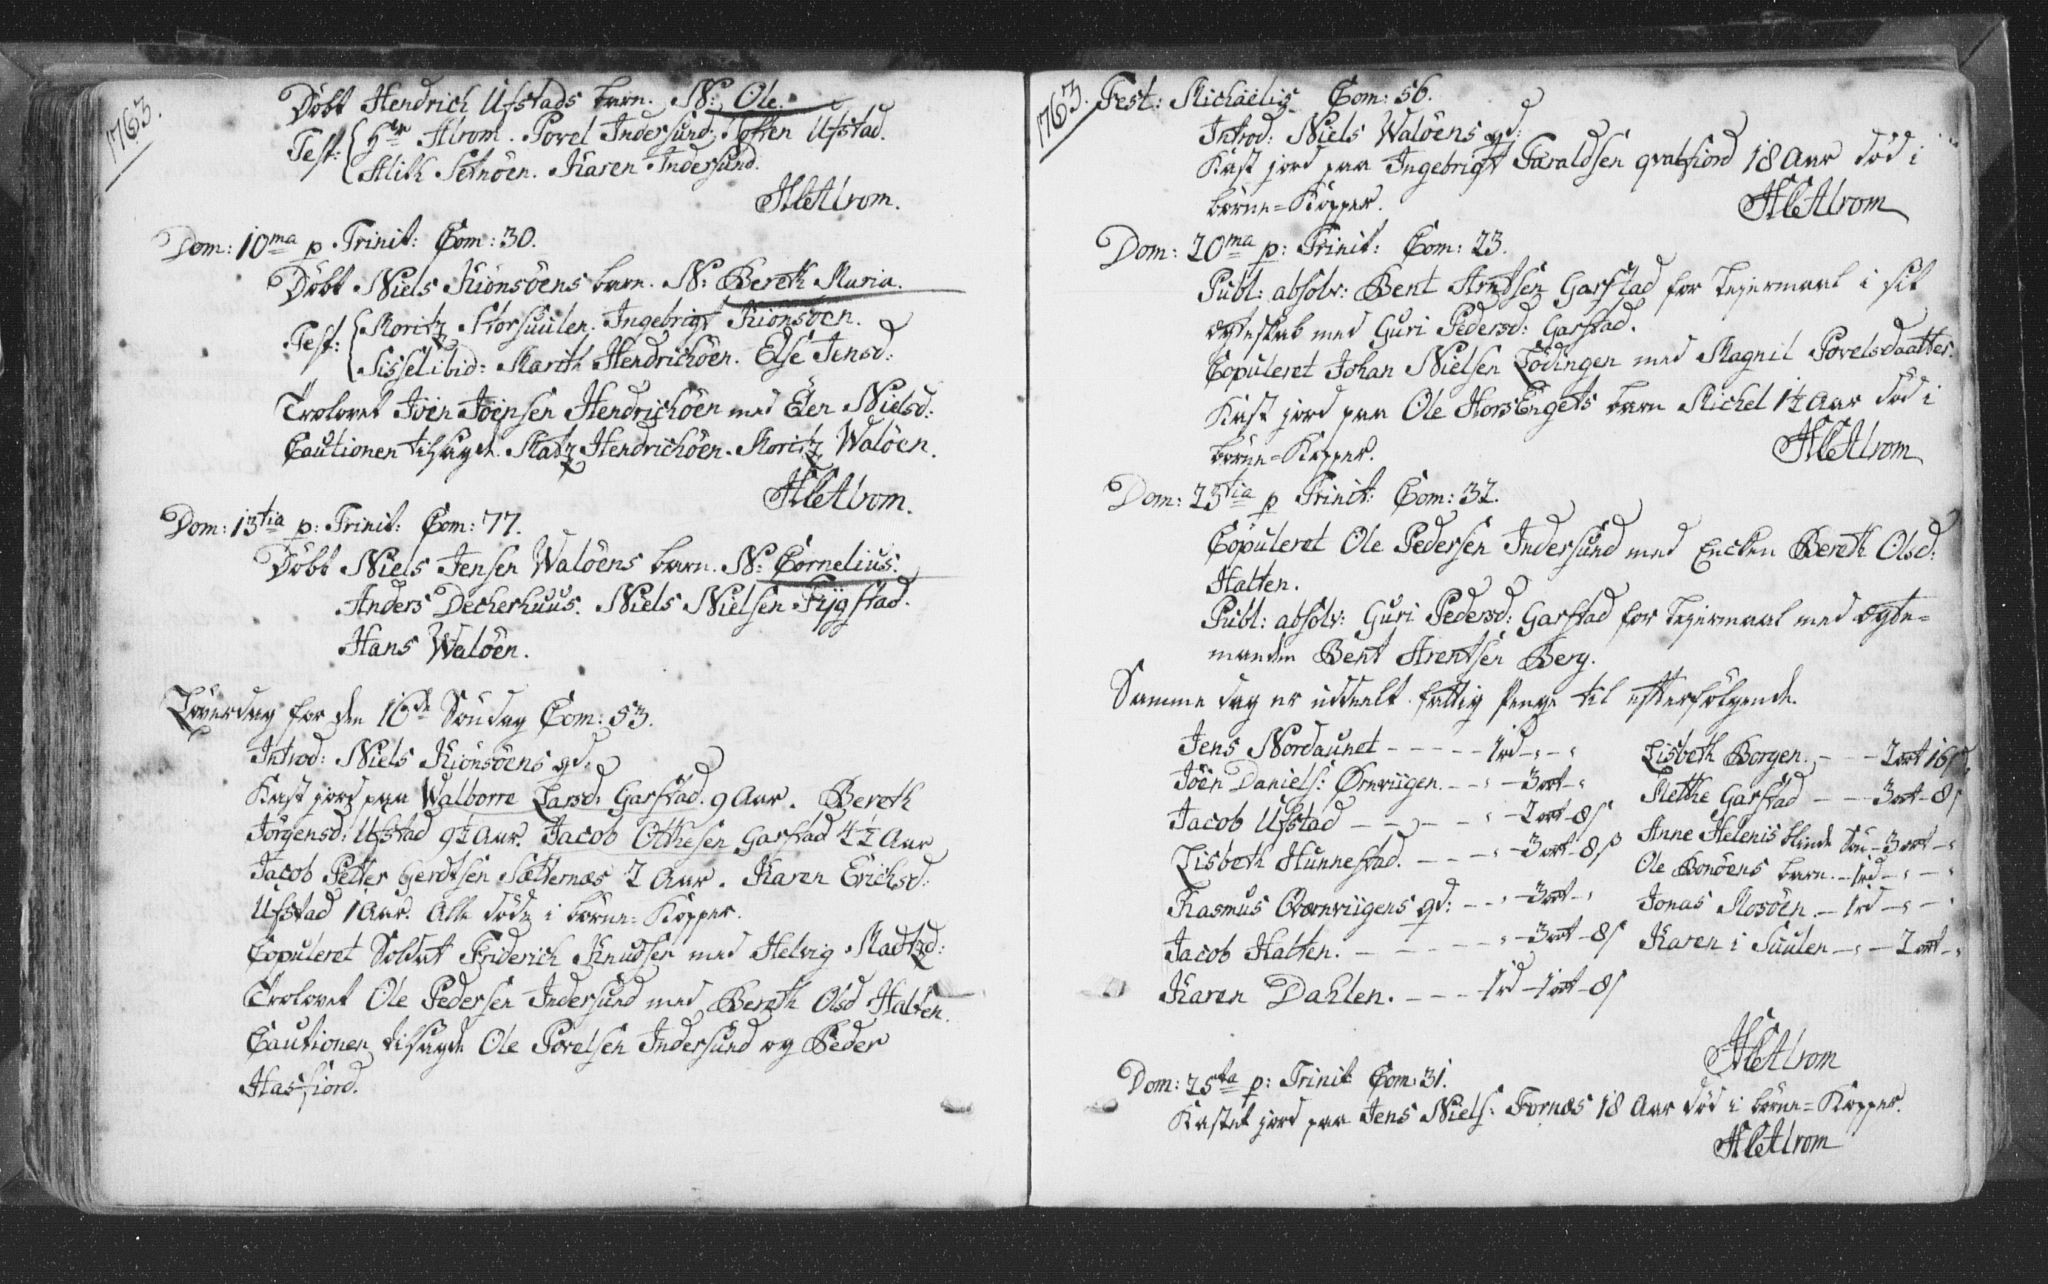 1763.
Döbt Hendrich Ufstads barn. N: Ole.
Test: Hr Alrom. Povel Indersund, Toften Ufstad.
Alith Setnöen. Karen Indersund.
HCAlrom.
Dom: 10ma p. Trinit: Com: 30.
Döbt Niels Kionsöens barn. N: Bereth Maria.
Test: Moritz Storsuulen. Ingebrigt Kionsöen.
Sissel ibid: Marith Hendrichöen. Else Jensd:
Trolovet Joen Joensen Hendrichöen med Elen Nielsd:
Cautionen tilsagde Matz Hendrichöen. Moritz Walöen.
HCAlrom.
Dom: 13tia p: Trinit: Com: 77.
Döbt Niels Jensen Walöens barn. N: Cornelius.
Anders Decherhuus. Niels Nielsen Fygstad.
Hans Walöen.
Löverdag for den 16de Söndag Com: 53.
Introd: Niels Kionsöens qd:
Kast jord paa Walborre Larsd: Garstad. 9 Aar. Bereth
Jörgensd: Ufstad 9½ Aar. Jacob Otthesen Garstad 4½ Aar
Jacob Petter Gerdtsen Sætternæs 2 Aar. Karen Erichsd:
Ufstad 1 Aar. Alle döde i börne-Kopper.
Copuleret Soldat Friderich Knudsen med Helvig Madtzd:
Trolovet Ole Pedersen Indersund med Bereth Olsd Halten.
Cautionen tilsagde Ole Povelsen Indersund og Peder
Hasfiord.
1763.
Fest: Michaëlis Com: 56.
Introd: Niels Walöens qd:
Kast jord paa Ingebrigt Faraldsen qvalfiord 18 Aar död i
börne-Kopper.
HCAlrom
Dom: 20ma p: Trinit: Com: 23.
Publ: absolv: Bent Arntsen Garstad for Leiermaal i sit
ægteskab med Guri Pedersd: Garstad.
Copuleret Johan Nielsen Lödingen med Magnil Povelsdaatter.
Kast jord paa Ole HorsEngets barn Michel 1½ Aar död i
börne-Kopper.
HCAlrom
Dom: 23tia p Trinit: Com: 32.
Copuleret Ole Pedersen Indersund med Encken Bereth Olsd:
Halten.
Publ: absolv: Guri Pedersd: Garstad for Leiermaal med ægte-
manden Bent Arentsen Berg.
Samme dag er uddeelt fattig Penge til efterfölgende.
Jens Nordaunet - - - - - 1rd - " - "
Joen Daniels: Örnviigen - - " - 3ort - "
Jacob Ufstad - - - - " - 2ort - 8s
Lisbeth Hunnestad. - - - " - 3ort - 8s
Rasmus Oværnviigens qd: - - " - 3ort - "
Jacob Halten. - - - - - " - 3ort - 8s
Karen Dahlen. - - - 1rd - 1ort - 8s
Lisbeth Borgen. - - - 2ort 16s
Methe Garstad - - - 3ort - 8s
Anne Helenis blinde Sön - 3ort - "
Ole Bonöens barn. - 1rd - " - "
Jonas Mosöen. - 1rd - " - "
Karen i Suulen - " - 2ort - "
HCAlrom
Dom: 25ta p: Trinit Com: 31.
Kastet jord paa Jens Niels: Fornæs 18 Aar död i börne-Kopper.
HCAlrom